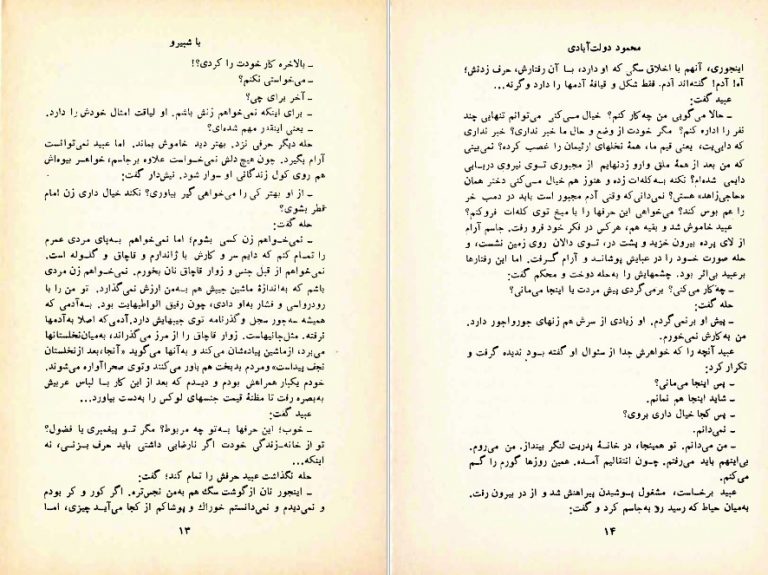 با شبیرو
ـ بالاخره کار خودت را کردی؟!
ـ می‌خواستی نکنم؟
ـ آخر برای چی؟
ـ برای اینکه نمی‌خواهم زنش باشم. او لیاقت امثال خودش را دارد.
ـ یعنی اینقدر مهم شده‌ای؟
حله دیگر حرفی نزد. بهتر دید خاموش بماند. اما عبید نمی‌توانست
آرام بگیرد. چون هیچ دلش نمی‌خواست علاوه برجاسم، خواهر بیوه‌اش
هم روی کول زندگانی او سوار شود. نیش‌دار گفت:
ـ از او بهتر کی را می‌خواهی گیر بیاوری؟ نکند خیال داری زن امام
قطر بشوی؟
حله گفت:
ـ نمی‌خواهم زن کسی بشوم؛ اما نمی‌خواهم به‌پای مردی عمرم
را تمام کنم که دایم سر و کارش با ژاندارم و قاچاق و گلوله است.
نمی‌خواهم از قبل جنس و زوار قاچاق نان بخورم. نمی‌خواهم زن مردی
باشم که به‌اندازهٔ ماشین جیبش هم به‌من ارزش نمی‌گذارد. تو من را با
رودرواسی و فشار به‌او دادی، چون رفیق الواطیهایت بود. به‌آدمی که
همیشه سه‌جور سجل و گذرنامه توی جیبهایش دارد. آدمی‌که اصلا به‌آدمها
نرفته. مثل‌جانیهاست. زوار قاچاق را از مرز می‌گذراند، به‌میان‌نخلستانها
می‌برد، ازماشین پیاده‌شان می‌کند و به‌آنها می‌گوید «آنجا، بعد ازنخلستان
نجف پیداست» ومردم بدبخت هم باور می‌کنند وتوی صحرا آواره می‌شوند.
خودم یکبار همراهش بودم و دیدم که بعد از این کار با لباس عربیش
به‌بصره رفت تا مظنهٔ قیمت جنسهای لوکس را به‌دست بیاورد...
عبید گفت:
ـ خوب؛ این حرفها به‌تو چه مربوط؟ مگر تو پیغمبری یا فضول؟
تو از خانه‌ـ‌زندگی خودت اگر نارضایی داشتی باید حرف بزنی، نه
اینکه...
حله نگذاشت عبید حرفش را تمام کند؛ گفت:
ـ اینجور نان از گوشت سگ هم به‌من نجس‌تره. اگر کور و کر بودم
و نمی‌دیدم و نمی‌دانستم خوراک و پوشاکم از کجا می‌آید چیزی، اما
۱۳
محمود دولت‌آبادی
اینجوری، آنهم با اخلاق سگی که او دارد، با آن رفتارش، حرف زدنش؛
آه! آدم! گفته‌اند آدم. فقط شکل و قیافهٔ آدمها را دارد وگرنه...
عبید گفت:
ـ حالا می‌گویی من چه‌کار کنم؟ خیال می‌کنی می‌توانم تنهایی چند
نفر را اداره کنم؟ مگر خودت از وضع و حال ما خبر نداری؟ خبر نداری
که دایی‌یت، یعنی قیم ما، همهٔ نخلهای ارثیمان را غصب کرده؟ نمی‌بینی
که من بعد از همهٔ ملق وارو زدنهایم از مجبوری توی نیروی دریایی
دایمی شده‌ام؟ نکنه به‌کله‌ات زده و هنوز هم خیال می‌کنی دختر همان
«حاجی‌زاهد» هستی؟ نمی‌دانی‌که وقتی آدم مجبور است باید در دمب خر
را هم بوس کند؟ می‌خواهی این حرفها را با میخ توی کله‌ات فروکنم؟
عبید خاموش شد و بقیه هم، هرکس در فکر خود فرو رفت. جاسم آرام
از لای پرده بیرون خزید و پشت در، توی دالان روی زمین نشست، و
حله صورت خود را در عبایش پوشاند و آرام گرفت. اما این رفتارها
برعبید بی‌اثر بود. چشمهایش را به‌حله دوخت و محکم گفت:
ـ چه‌کار می‌کنی؟ برمی‌گردی پیش مردت یا اینجا می‌مانی؟
حله گفت:
ـ پیش او برنمی‌گردم. او زیادی از سرش هم زنهای جورواجور دارد.
من به‌کارش نمی‌خورم.
عبید آنچه را که خواهرش جدا از سئوال او گفته بود ندیده گرفت و
تکرار کرد:
ـ پس اینجا می‌مانی؟
ـ شاید اینجا هم نمانم.
ـ پس کجا خیال داری بروی؟
ـ نمی‌دانم.
ـ من می‌دانم. تو همینجا، در خانهٔ پدریت لنگر بینداز. من می‌روم.
بی‌اینهم باید می‌رفتم. چون انتقالیم آمده. همین روزها گورم را گم
می‌کنم.
عبید برخاست، مشغول پوشیدن پیراهنش شد و از در بیرون رفت.
به‌میان حیاط که رسید رو به‌جاسم کرد و گفت:
۱۴